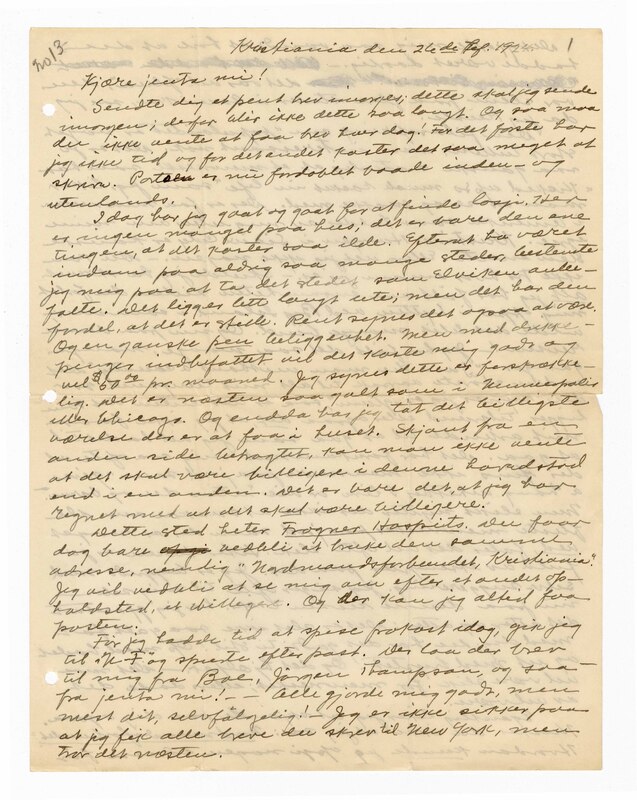 No 13
Kristiania den 26de 1
Kjære jenta mi!
Sendte dig et pent brev imorges; dette skal jeg sende
imorgen; derfor blir ikke dette saa langt. Og saa maa
du ikke vente at faa brev hver dag! For det første har
jeg ikke tid og for det andet koster det saa meget at
skrive. Portoen er nu fordoblet baade inden- og
utenlands.
I dag har jeg gaat og gaat for at finde losji. Her
er ingen mangel paa hus; det er bare den ene
tingen, at det koster saa ilde. Efterat ha været
indom paa aldrig saa mange steder, bestemte
jeg mig paa at ta det stedet som Elviken anbe-
falte. Det ligger lett langt ute; men det har den
fordel, at det er stille. Pent synes det ogsaa at være.
Og en ganske pen beliggenhet. Men med drikke-
penger indbefattet vil det koste mig godt og
vel $60.00 pr. maaned. Jeg synes dette er forskrække-
lig. Det er næsten saa galt som i Minneapolis
eller Chicago. Og endda har jeg tat det billigste
værelse der er at faa i huset. Skjønt fra en
anden side betragtet, kan man ikke vente
at det skal være billigere i denne hovedstad
end i en anden. Det er bare det, at jeg har
regnet med at det skal være billigere.
Dette sted heter Frogner Hospits. Du faar
dog bare vedbli at bruke den samme
adresse, nemlig "Nordmandsforbundet, Kristiania".
Jeg vil vedbli at se mig om efter et andet op-
holdsted, et billigere. Og der kan jeg altid faa
posten.
Før jeg hadde tid at spise frokost idag, gik jeg
til "N-F" og spurte efter post. Der laa der brev
til mig fra Boe, Jørgen Thompson, og saa-
fra jenta mi! - Alle gjorde mig godt, men
mest dit, selvfølgelig! - Jeg er ikke sikker paa
at jeg fik alle breve du skrev til New York, men
tror det næsten.